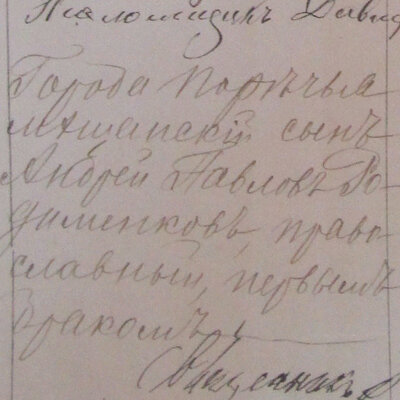 Псаломщикъ Давид
Города Порѣчья
мѣщанскій сынъ
Андрей Павловъ Ро-
дименковъ, право-
славный, первымъ
бракомъ